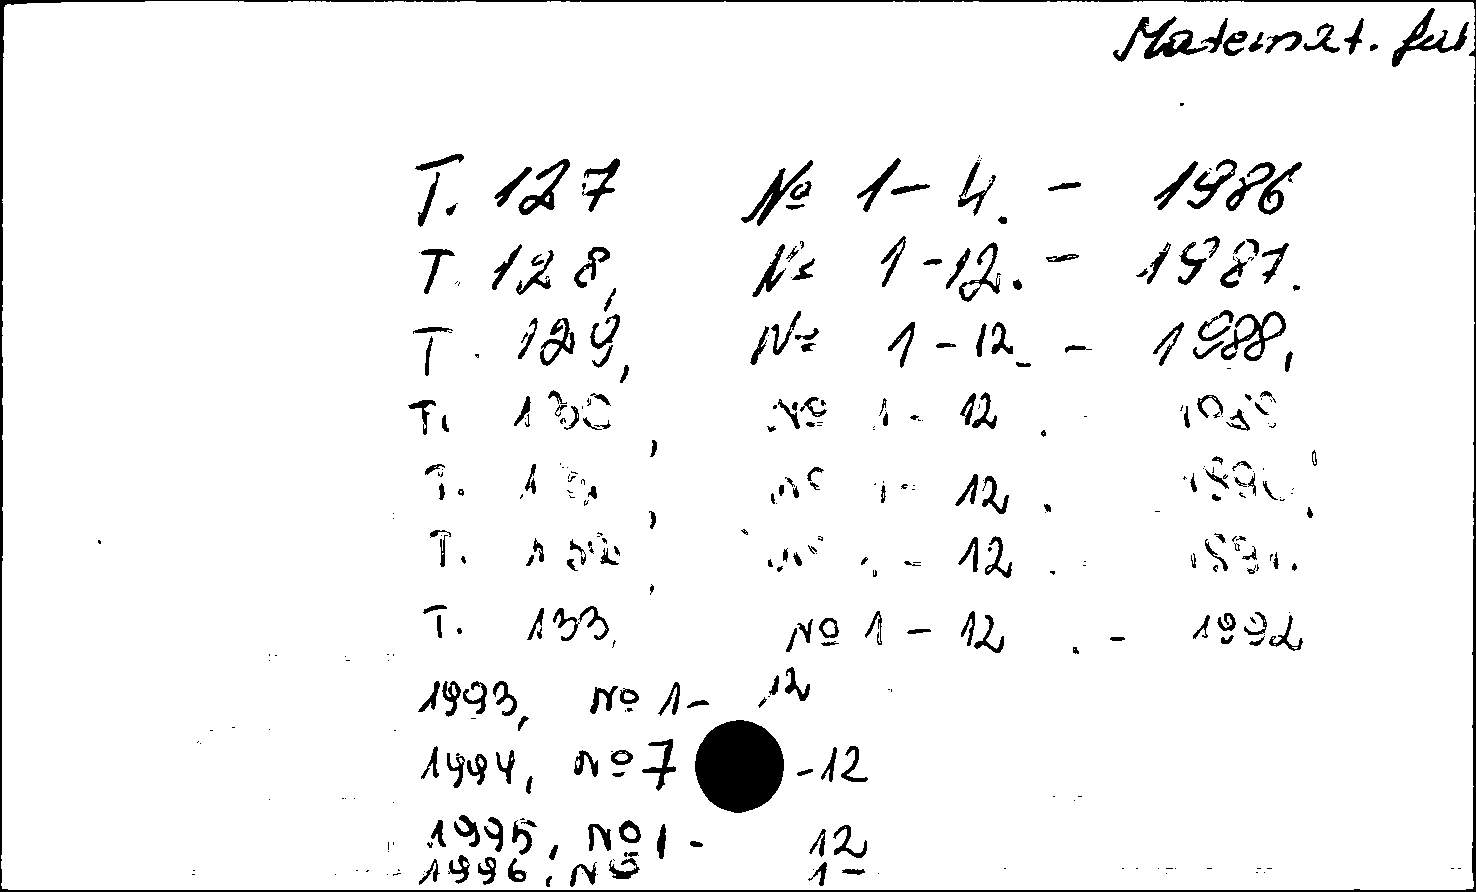 Matemat.
T. 127 № 1 - 4. - 1986
T. 128, № 1 - 12. - 1987.
T. 129, № 1 - 12. - 1988.
T. 130, № 1 - 12. 1989
T. № 1 - 12. 1990.
T. 132, № 1 - 12. 1991.
T. 133, № 1 - 12. - 1992
1993, № 1 - 12
1994, № 7 - 12
1995, № 1 - 12
1996, № 1 -